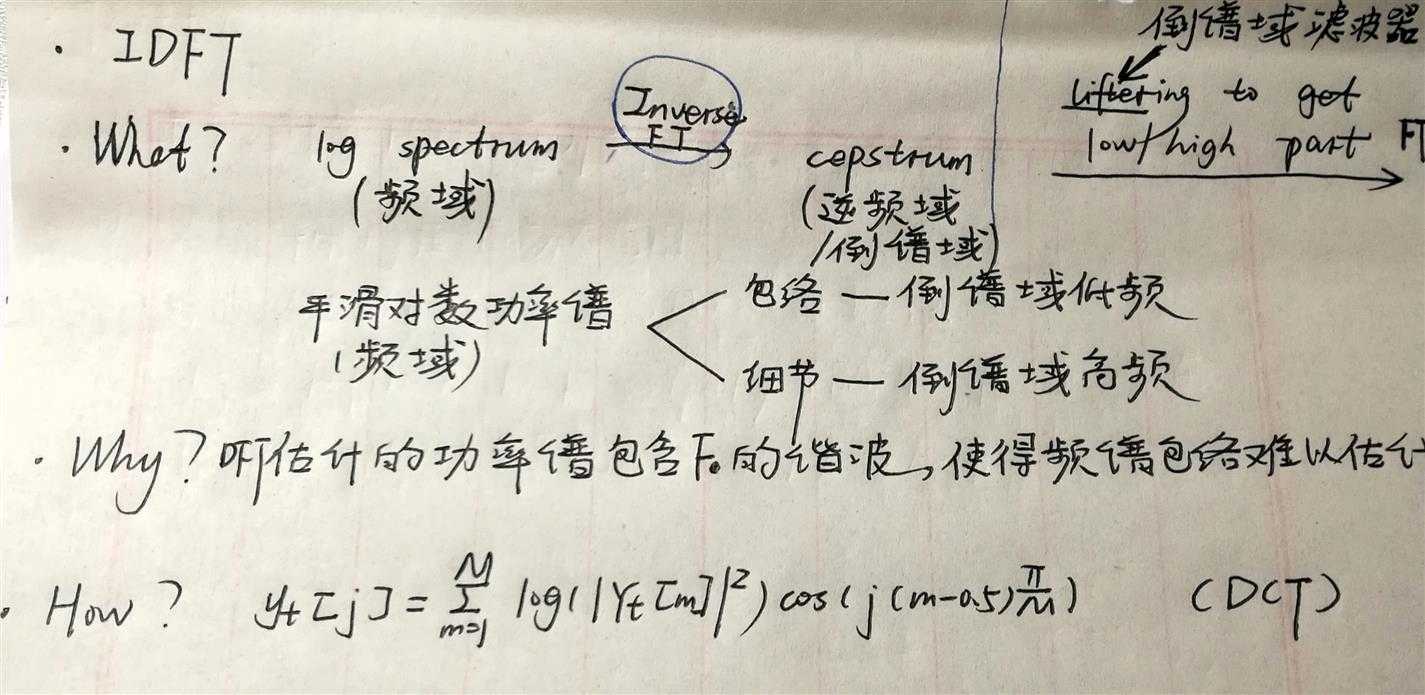 倒谱域滤波器
· IDFT
Inverse FT
liftering to get
low/high part FT
· What? log spectrum → cepstrum
(频域) (逆频域
/倒谱域)
平滑对数功率谱 包络 — 倒谱域低频
(频域) 细节 — 倒谱域高频
· Why? DFT估计的功率谱包含F₀的谐波,使得频谱包络难以估计
· How? yt[j] = ∑ᴹₘ₌₁ log(|Yt[m]|²) cos(j(m-0.5)π/M) (DCT)